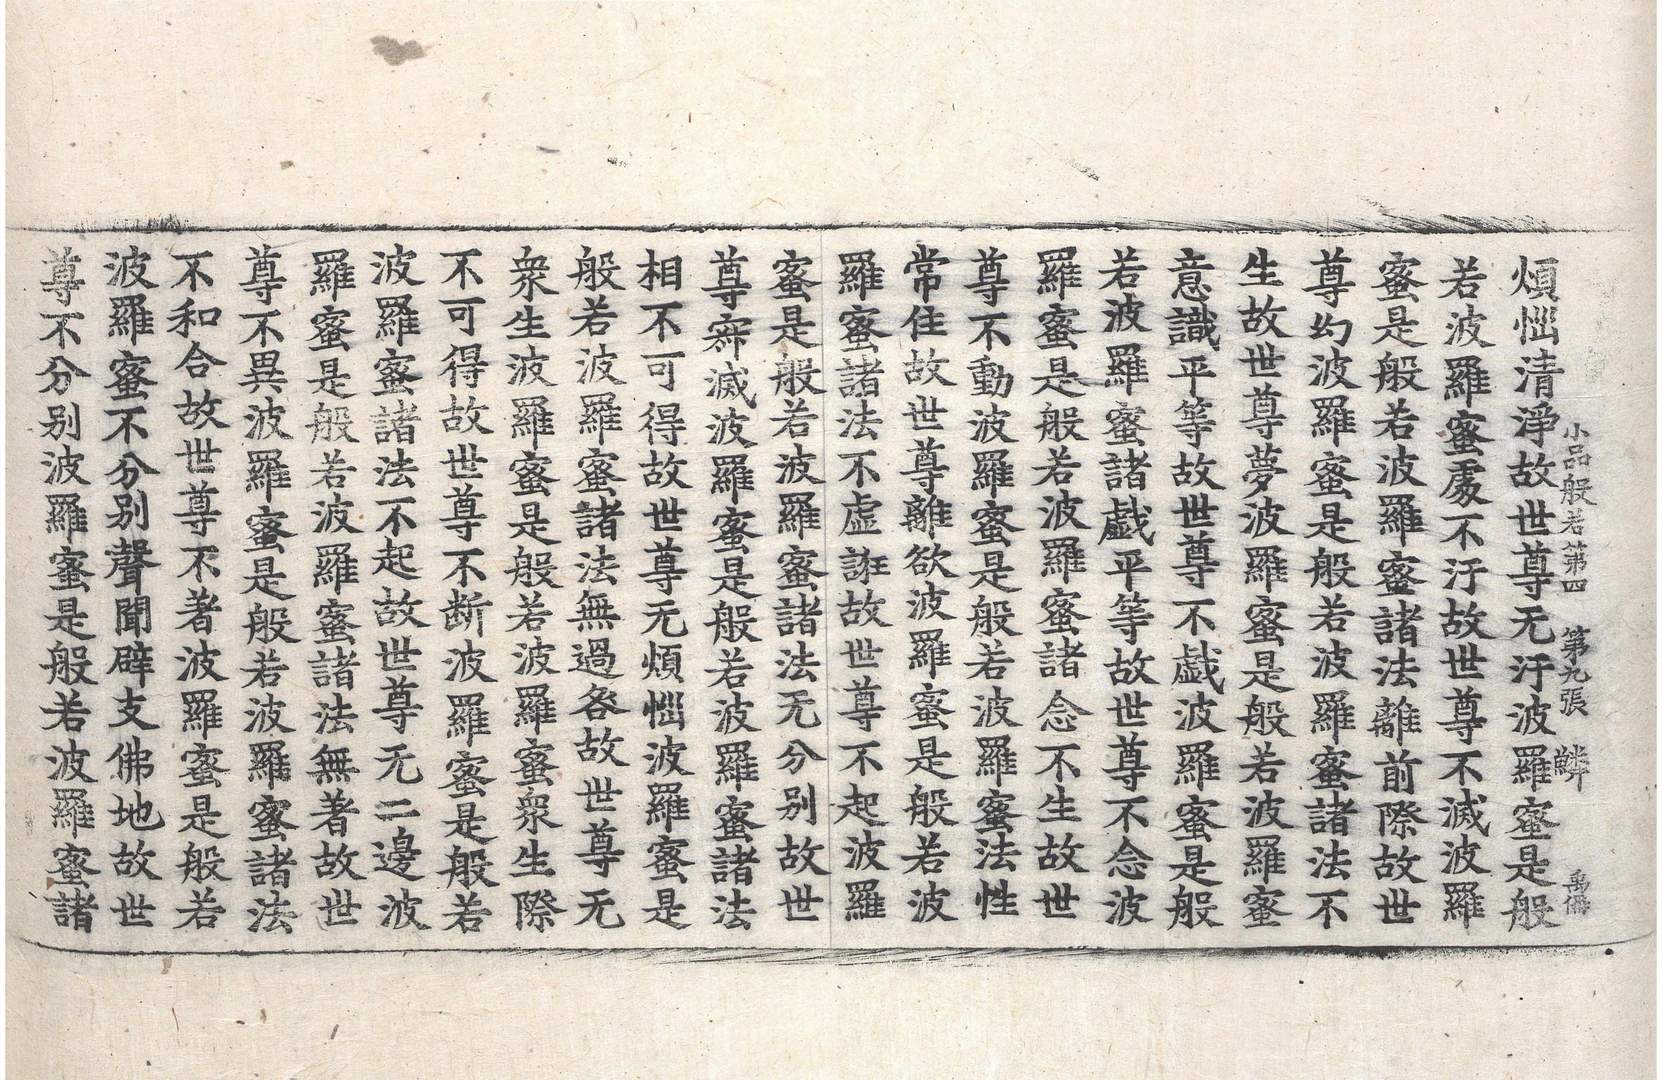 小品般若第四　第九張　鱗　禹儁
煩惱清淨故世尊无汙波羅蜜是般
若波羅蜜處不汙故世尊不滅波羅
蜜是般若波羅蜜諸法離前際故世
尊幻波羅蜜是般若波羅蜜諸法不
生故世尊夢波羅蜜是般若波羅蜜
意識平等故世尊不戱波羅蜜是般
若波羅蜜諸戱平等故世尊不念波
羅蜜是般若波羅蜜諸念不生故世
尊不動波羅蜜是般若波羅蜜法性
常住故世尊離欲波羅蜜是般若波
羅蜜諸法不虛誑故世尊不起波羅
蜜是般若波羅蜜諸法无分別故世
尊寂滅波羅蜜是般若波羅蜜諸法
相不可得故世尊无煩惱波羅蜜是
般若波羅蜜諸法無過咎故世尊无
衆生波羅蜜是般若波羅蜜衆生際
不可得故世尊不断波羅蜜是般若
波羅蜜諸法不起故世尊无二邊波
羅蜜是般若波羅蜜諸法無著故世
尊不異波羅蜜是般若波羅蜜諸法
不和合故世尊不著波羅蜜是般若
波羅蜜不分別聲聞辟支佛地故世
尊不分別波羅蜜是般若波羅蜜諸